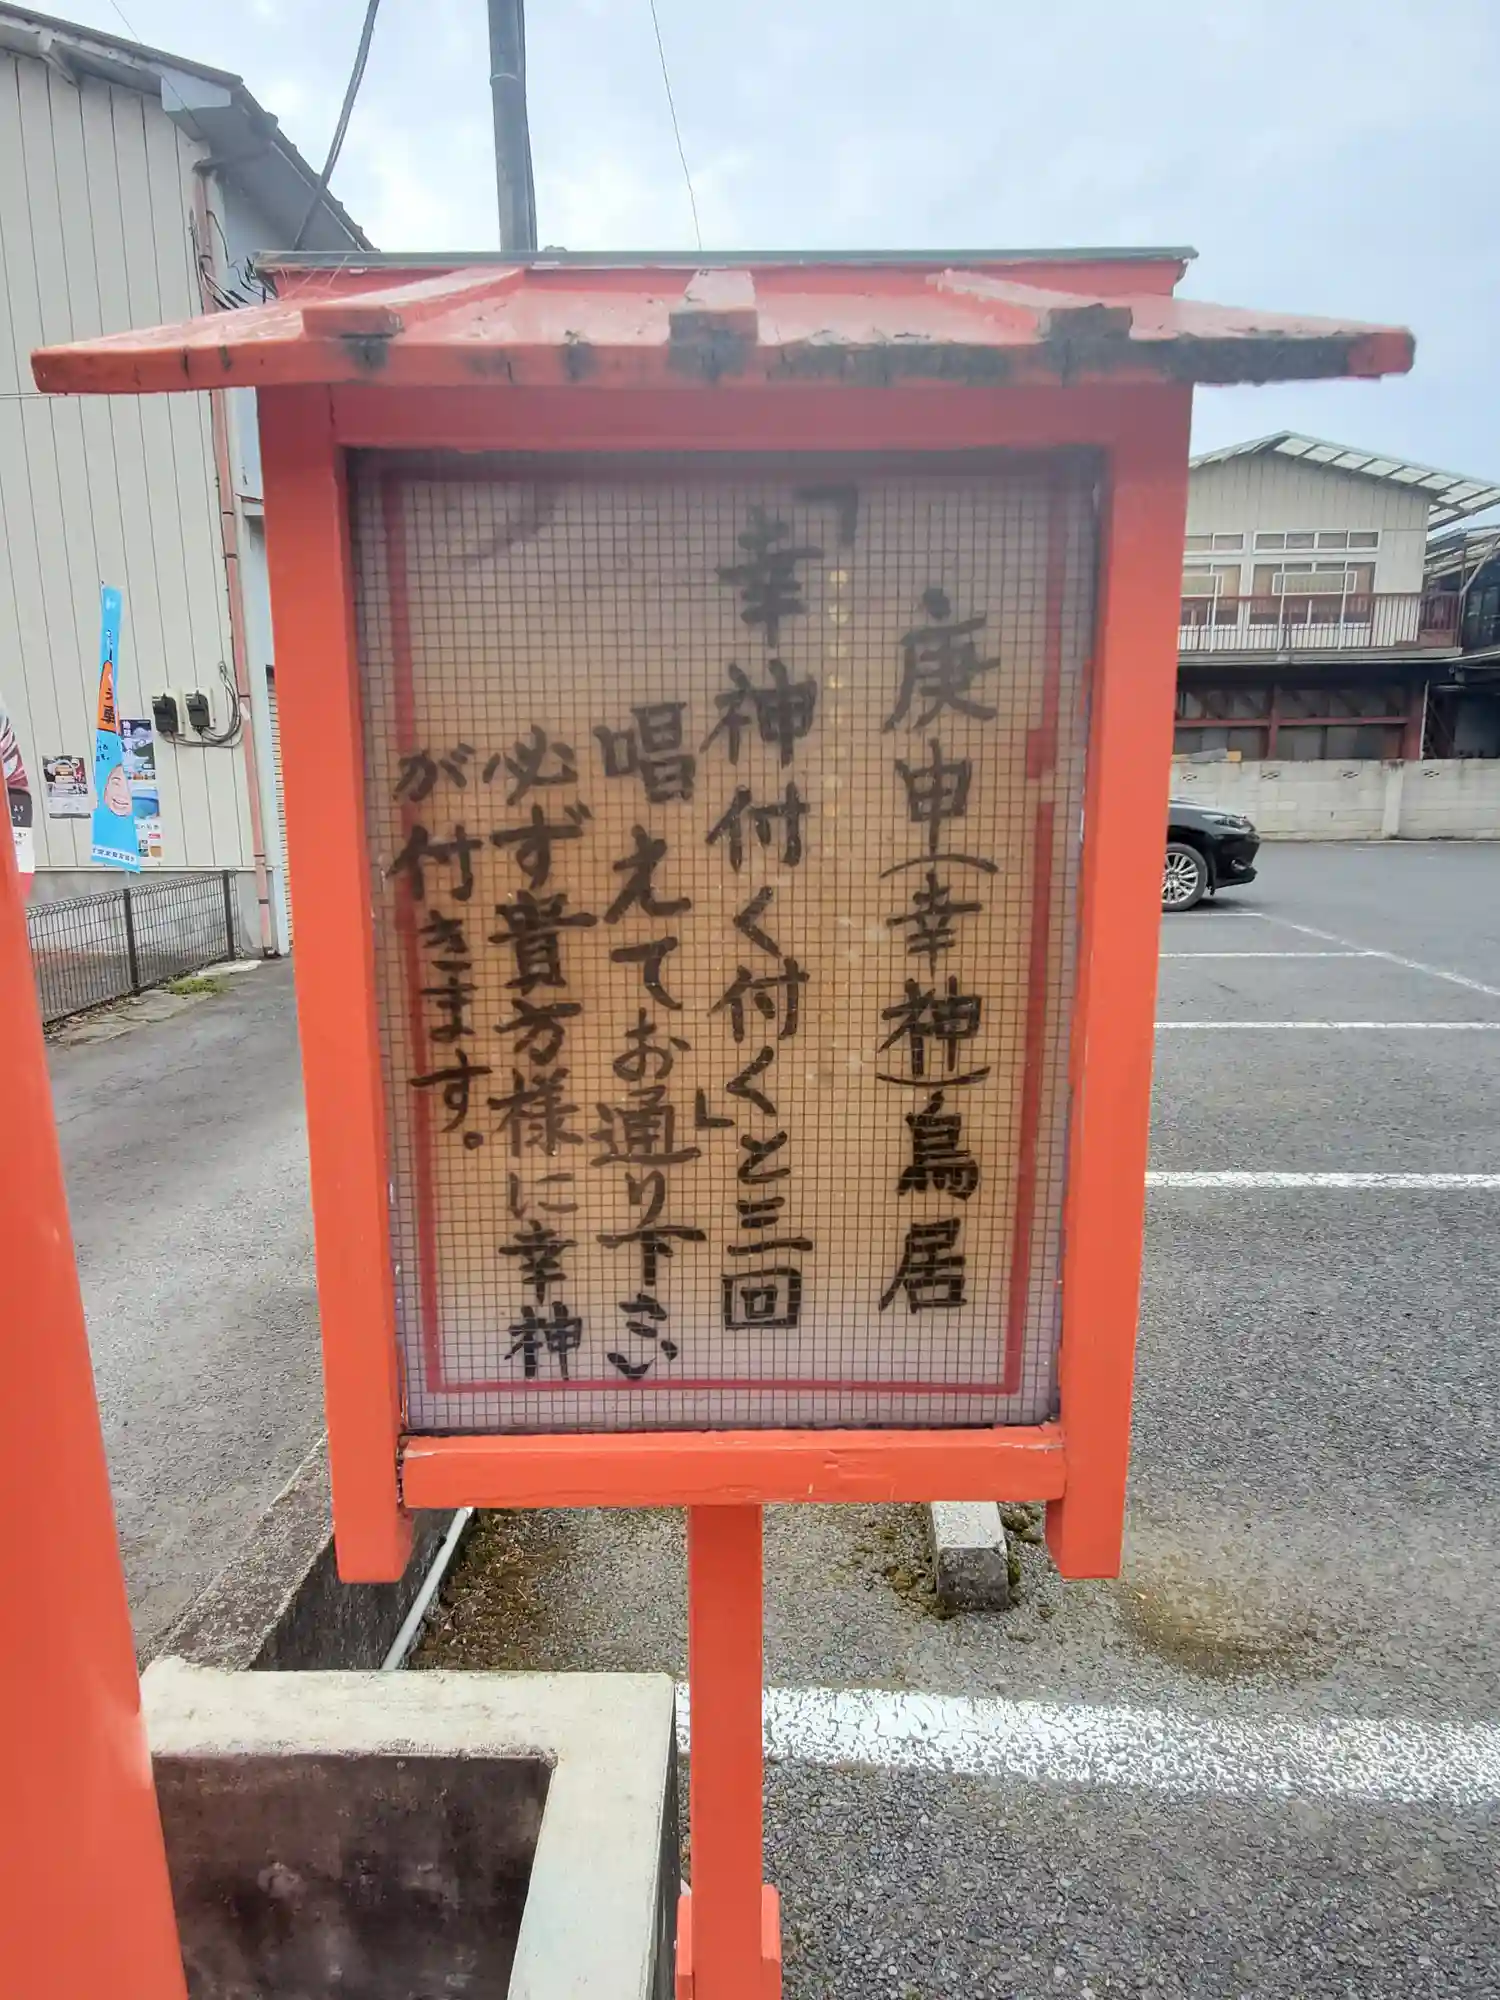 庚申(幸神)鳥居
「幸神付く付く」と三回
唱えてお通り下さい
必ず貴方様に幸神
が付きます。